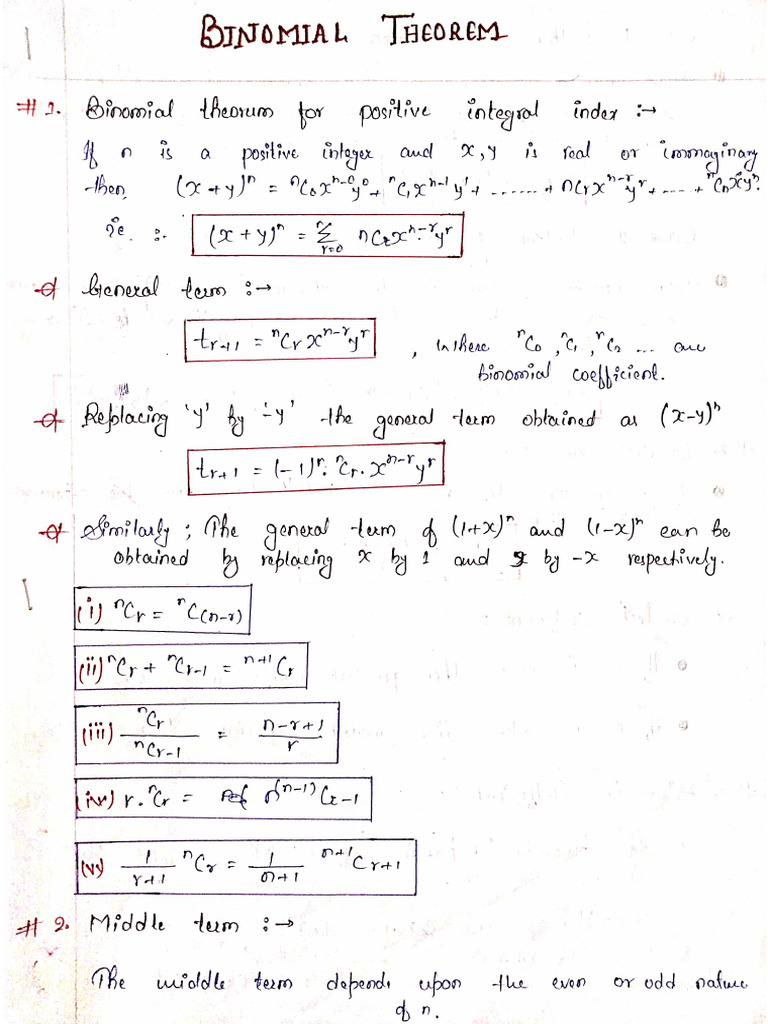 BINOMIAL THEOREM
# 1. Binomial theorum for positive integral index :→
If n is a positive integer and x, y is real or immaginary
then, (x+y)ⁿ = ⁿC₀xⁿ⁻⁰y⁰ + ⁿC₁xⁿ⁻¹y¹ + ...... + nCrxⁿ⁻ʳyʳ + .... + ⁿCₙx⁰yⁿ.
ie. :- (x+y)ⁿ = Σⁿᵣ₌₀ nCrxⁿ⁻ʳyʳ
General term :→
tᵣ₊₁ = ⁿCᵣxⁿ⁻ʳyʳ , where ⁿC₀, ⁿC₁, ⁿC₂ ... are
Binomial coefficient.
Replacing 'y' by '-y' the general term obtained as (x-y)ⁿ
tᵣ₊₁ = (-1)ʳ. ⁿCᵣ. xⁿ⁻ʳyʳ
Similarly ; The general term of (1+x)ⁿ and (1-x)ⁿ can be
obtained by replacing x by 1 and x by -x respectively.
(i) ⁿCᵣ = ⁿC₍ₙ₋ᵣ₎
(ii) ⁿCᵣ + ⁿCᵣ₋₁ = ⁿ⁺¹Cᵣ
(iii) ⁿCᵣ / ⁿCᵣ₋₁ = n-r+1 / r
(iv) r.ⁿCᵣ = n⁽ⁿ⁻¹⁾Cᵣ₋₁
(v) 1/r+1 ⁿCᵣ = 1/n+1 ⁿ⁺¹Cᵣ₊₁
# 2. Middle term :→
The middle term depends upon the even or odd nature
of n.